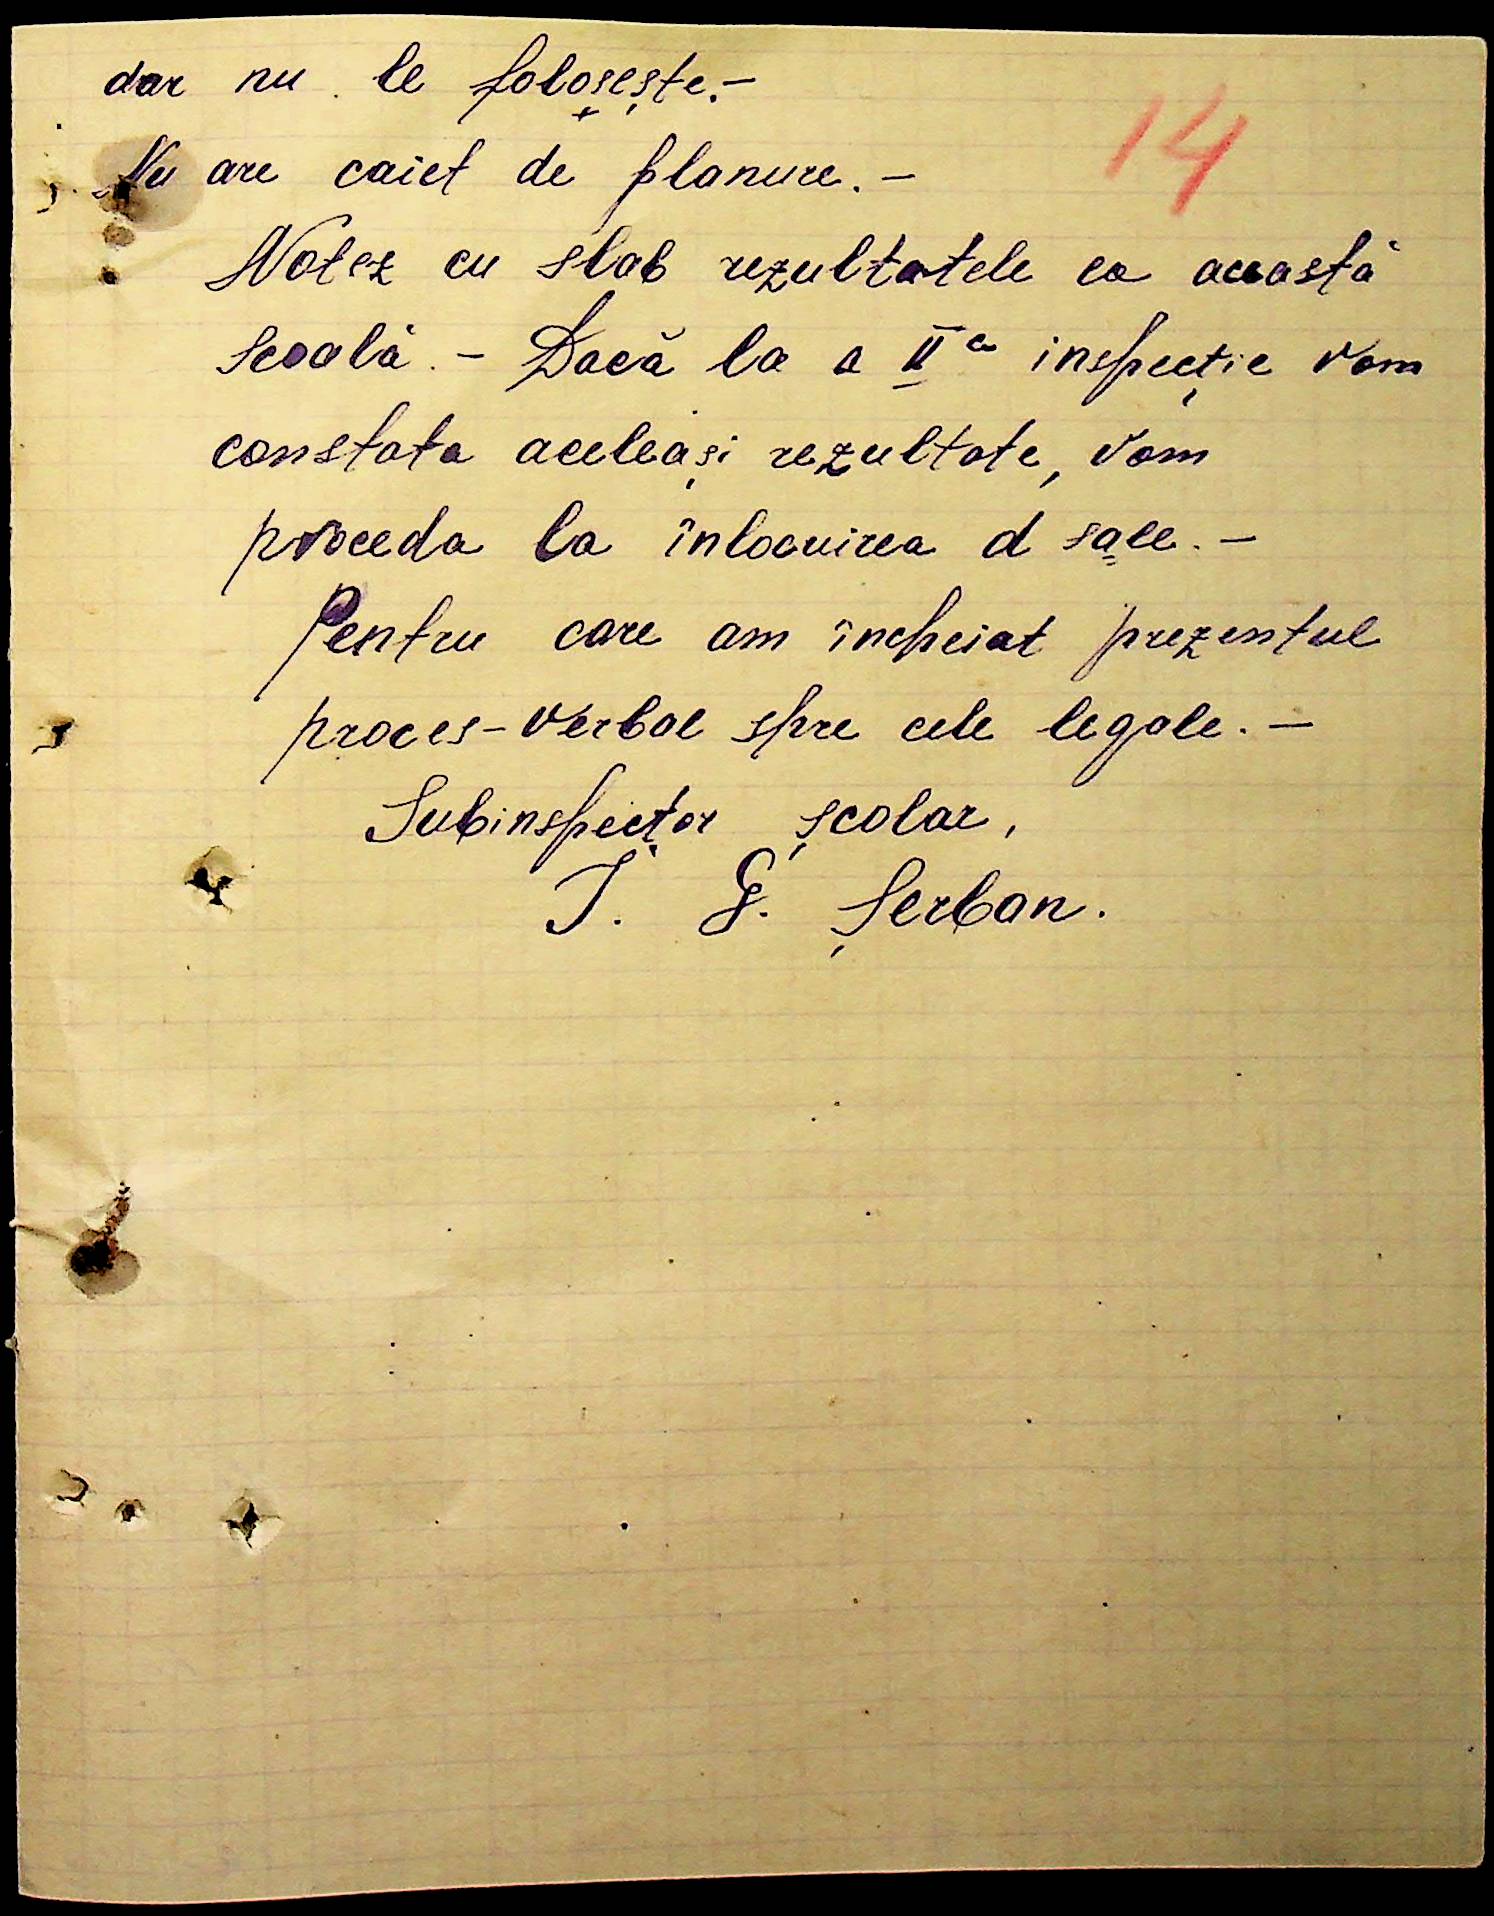 dar nu le foloseşte.-
14
Nu are caiet de planure.-
Notez cu slab rezultatele ca această
scoală.- Dacă la a II a inspecție vom
constata aceleași rezultate, vom
proceda la înlocuirea d sale.-
Pentru care am încheiat prezentul
proces-verbal spre cele legale.-
Subinspector școlar,
I. G. Șerban.